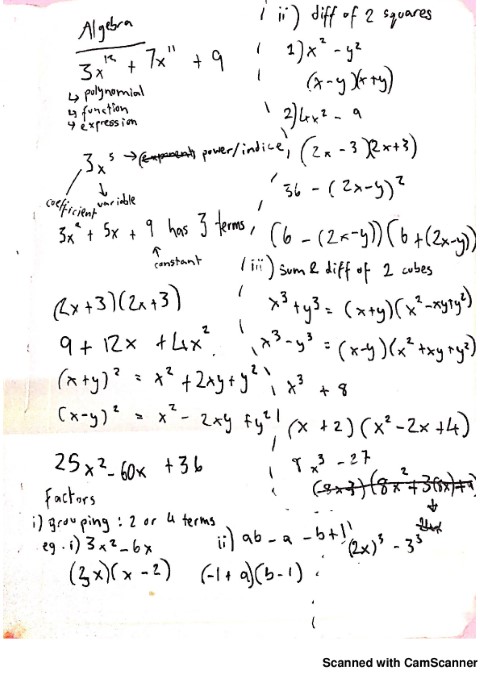 Algebra
3x¹² + 7x¹¹ + 9
↳ polynomial
↳ function
↳ expression
3x⁵ → (exponent) power/indice
coefficient
variable
3x² + 5x + 9 has 3 terms
constant
(2x+3)(2x+3)
9 + 12x + 4x²
(x+y)² = x² + 2xy + y²
(x-y)² = x² - 2xy + y²
25x² - 60x + 36
Factors
i) grouping : 2 or 4 terms
eg. i) 3x² - 6x
(3x)(x - 2)
ii) ab - a - b + 1
(-1 + a)(b - 1)
ii) diff of 2 squares
1) x² - y²
(x-y)(x+y)
2) 4x² - 9
(2x - 3)(2x+3)
36 - (2x-y)²
(6 - (2x-y))(6+(2x-y))
iii) sum & diff of 2 cubes
x³+y³ = (x+y)(x²-xy+y²)
x³-y³ = (x-y)(x²+xy+y²)
x³ + 8
(x + 2)(x² - 2x + 4)
8x³ - 27
(2x)³ - 3³
Scanned with CamScanner